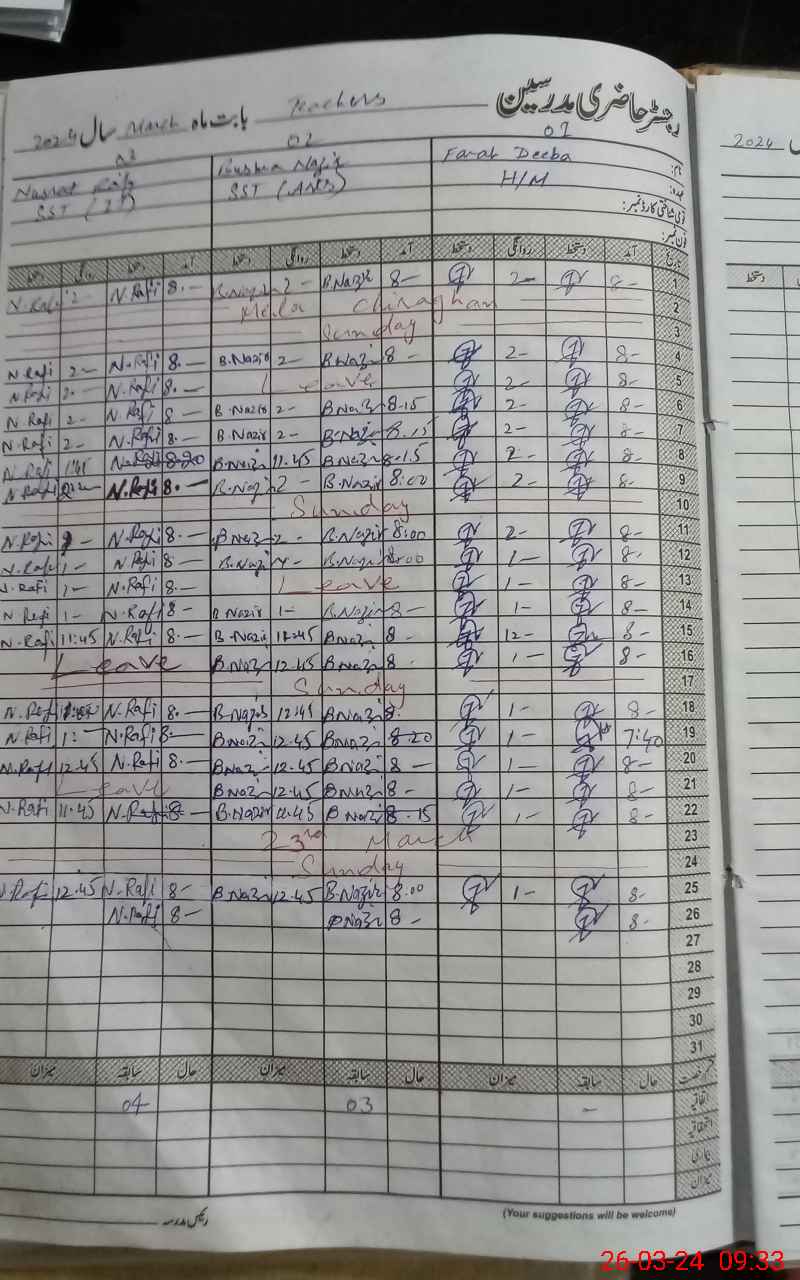 رجسٹر حاضری مدرسین Teachers بابت ماہ March سال 2024
01 02
نام: Farah Deeba Bushra Nazir Nusrat Rafi
عہدہ: H/M SST (Arts) SST
قومی شناختی کارڈ نمبر:
فون نمبر:
تاریخ آمد دستخط روانگی دستخط آمد دستخط روانگی دستخط آمد دستخط روانگی دستخط
1 8- 2- 8- B.Nazir 2- B.Nazir 8.- N.Rafi 2- N.Rafi
2 Mela Chiraghan
3 Sunday
4 8- 2- 8- B.Nazir 2- B.Nazir 8.- N.Rafi 2- N.Rafi
5 8- 2- Leave 8.- N.Rafi 2- N.Rafi
6 8- 2- 8.15 B.Nazir 2- B.Nazir 8- N.Rafi 2- N.Rafi
7 8- 2- 8.15 B.Nazir 2- B.Nazir 8.- N.Rafi 2- N.Rafi
8 8- 2- 8.15 B.Nazir 11.45 B.Nazir 8.20 N.Rafi N.Rafi
9 8- 2- 8:00 B.Nazir 2- B.Nazir 8.- N.Rafi N.Rafi
10 Sunday
11 8- 2- 8:00 B.Nazir 2- B.Nazir 8.- N.Rafi N.Rafi
12 8- 1- 8:00 B.Nazir B.Nazir 8- N.Rafi 1- N.Rafi
13 8- 1- Leave 8.- N.Rafi 1- N.Rafi
14 8- 1- 8- B.Nazir 1- B.Nazir 8- N.Rafi 1- N.Rafi
15 8- 12- 8- B.Nazir B.Nazir 8.- N.Rafi 11:45 N.Rafi
16 8- 1- 8- B.Nazir 12.45 B.Nazir Leave
17 Sunday
18 8- 1- 8. B.Nazir 12:45 B.Nazir 8.- N.Rafi N.Rafi
19 7:40 1- 8-20 B.Nazir 12.45 B.Nazir 8.- N.Rafi 1:- N.Rafi
20 8- 1- 8- B.Nazir 12.45 B.Nazir 8.- N.Rafi 12.45 N.Rafi
21 8- 1- 8- B.Nazir 12.45 B.Nazir Leave
22 8- 1- 8-15 B.Nazir 11.45 B.Nazir 8- N.Rafi 11.45 N.Rafi
23 23rd March
24 Sunday
25 8- 1- 8.00 B.Nazir 12.45 B.Nazir 8- N.Rafi 12.45 N.Rafi
26 8- 8- B.Nazir 8- N.Rafi
27
28
29
30
31
قسم رخصت حال سابقہ میزان حال سابقہ میزان حال سابقہ میزان
اتفاقیہ - 03 04
استحقاقیہ
بیماری
میزان
رئیس مدرسہ
(Your suggestions will be welcome)
2024
دستخط
26-03-24 09:33